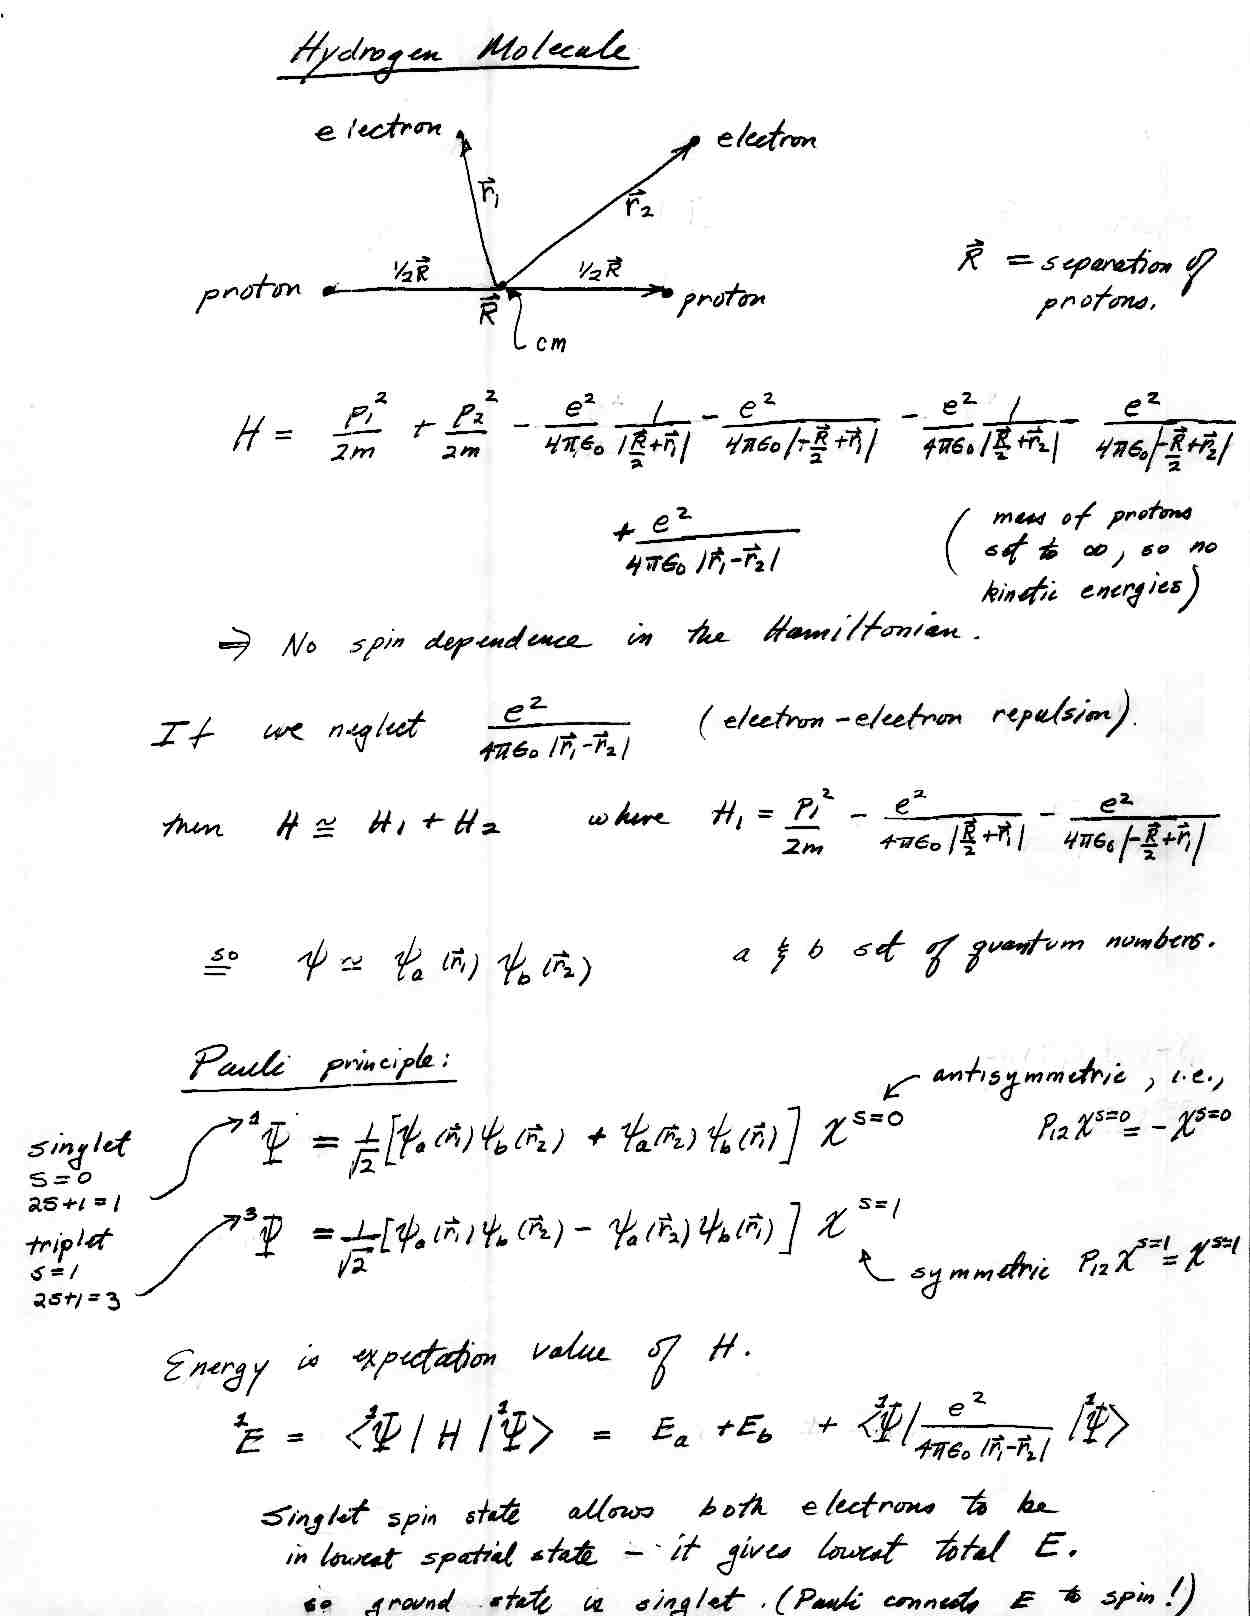 Hydrogen Molecule
electron
electron
r⃗₁
r⃗₂
½R⃗
½R⃗
R⃗ = separation of
protons.
proton
R⃗
proton
cm
H = p₁²/2m + p₂²/2m − e²/4πϵ₀ 1/|R⃗/2+r⃗₁| − e²/4πϵ₀|−R⃗/2+r⃗₁| − e²/4πϵ₀ 1/|R⃗/2+r⃗₂| − e²/4πϵ₀|−R⃗/2+r⃗₂|
+ e²/4πϵ₀|r⃗₁−r⃗₂|
(mass of protons
set to ∞, so no
kinetic energies)
⇒ No spin dependence in the Hamiltonian.
If we neglect e²/4πϵ₀|r⃗₁−r⃗₂| (electron-electron repulsion).
then H ≅ H₁ + H₂ where H₁ = p₁²/2m − e²/4πϵ₀|R⃗/2+r⃗₁| − e²/4πϵ₀|−R⃗/2+r⃗₁|
so ψ ≃ ψₐ(r⃗₁) ψ_b(r⃗₂) a & b set of quantum numbers.
Pauli principle:
antisymmetric, i.e.,
P₁₂ χ^{S=0} = − χ^{S=0}
¹Ψ = 1/√2 [ψₐ(r⃗₁)ψ_b(r⃗₂) + ψₐ(r⃗₂)ψ_b(r⃗₁)] χ^{S=0}
singlet
S=0
2S+1=1
triplet
S=1
2S+1=3
³Ψ = 1/√2 [ψₐ(r⃗₁)ψ_b(r⃗₂) − ψₐ(r⃗₂)ψ_b(r⃗₁)] χ^{S=1}
symmetric P₁₂ χ^{S=1} = χ^{S=1}
Energy is expectation value of H.
¹E = ⟨¹Ψ|H|¹Ψ⟩ = Eₐ + E_b + ⟨¹Ψ| e²/4πϵ₀|r⃗₁−r⃗₂| |¹Ψ⟩
Singlet spin state allows both electrons to be
in lowest spatial state – it gives lowest total E.
so ground state is singlet. (Pauli connects E to spin!)